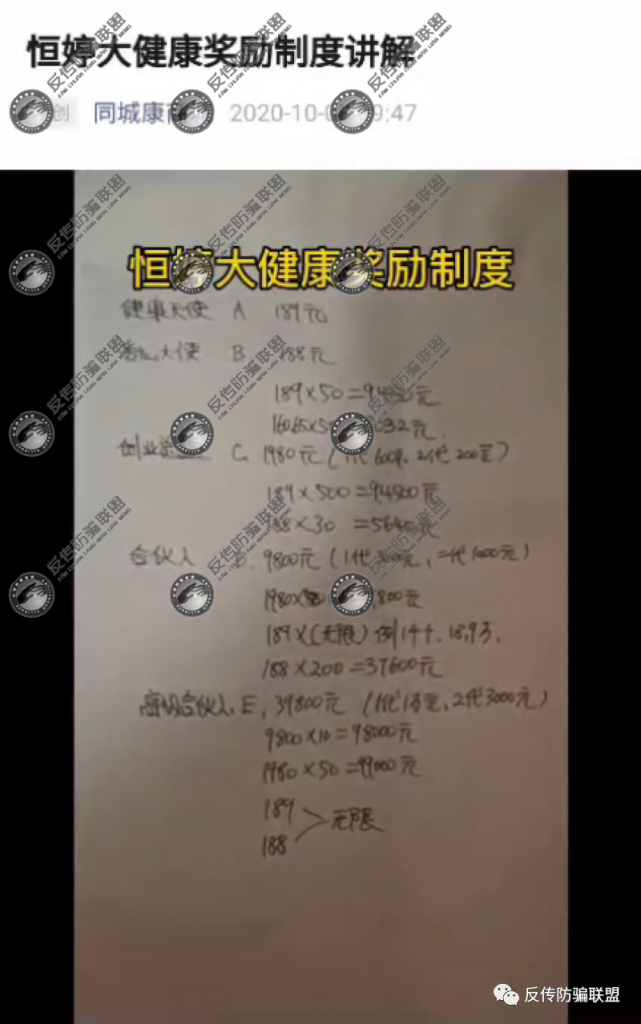 恒婷大健康奖励制度讲解
创 同城康 2020-10-0 9:47
恒婷大健康奖励制度
健康天使 A 189元
大使 B 188元
189×50=9450元
160.65×50 8032元
创业 C 1980元(1代600元, 2代200元)
189×500=94500元
188×30 =5640元
合伙人 9800元(1代 元, 二代1000元)
1980× 800元
189×(无限)例1千个, 18.9万,
188×200=37600元
高级合伙人 E, 39800元 (1代1万元, 2代3000元)
9800×10=98000元
1980×50=99000元
189
无限
188
反传防骗联盟